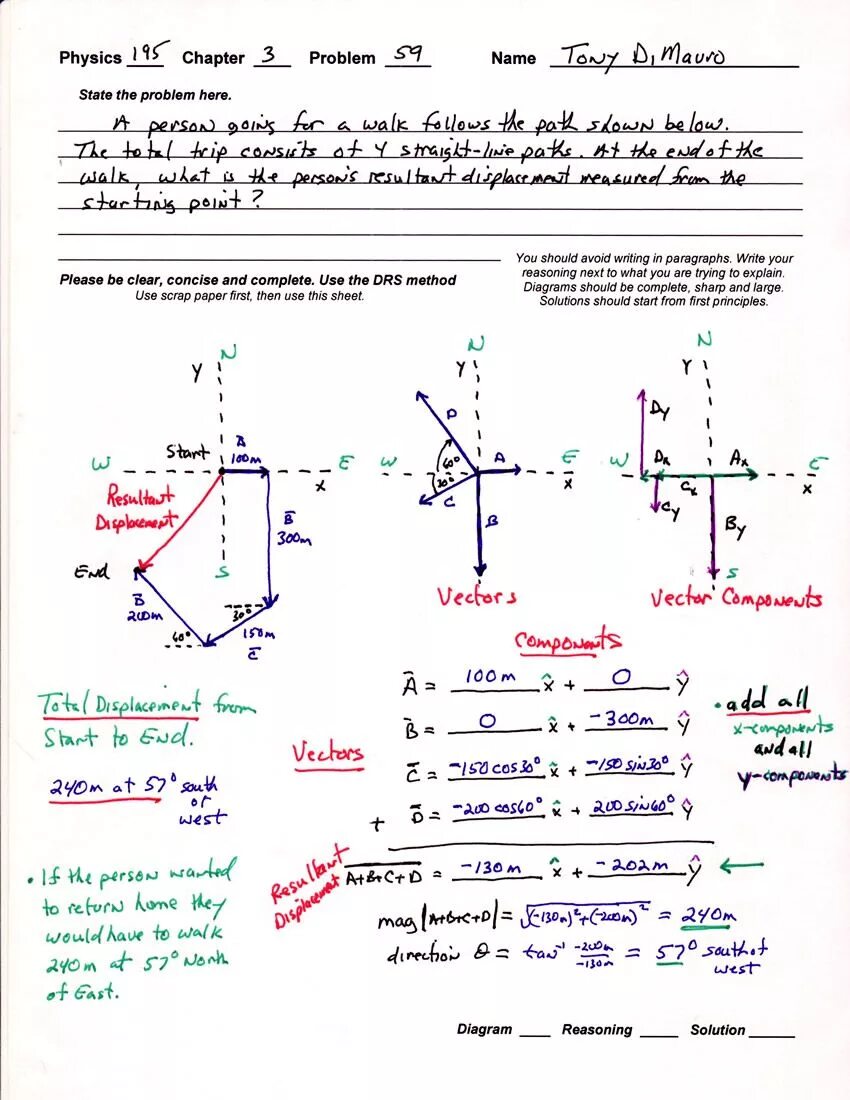 Physics 195 Chapter 3 Problem 59 Name Tony DiMauro
State the problem here.
A person going for a walk follows the path shown below.
The total trip consists of 4 straight-line paths. At the end of the
walk, what is the person's resultant displacement measured from the
starting point?
Please be clear, concise and complete. Use the DRS method
Use scrap paper first, then use this sheet.
You should avoid writing in paragraphs. Write your
reasoning next to what you are trying to explain.
Diagrams should be complete, sharp and large.
Solutions should start from first principles.
N
Y
Start
A
100m
W
E
x
Resultant
Displacement
B
300m
End
S
B
200m
60°
30°
150m
C
N
Y
D
W
60°
A
E
x
30°
C
B
Vectors
N
Y
Dy
W
Dx
Ax
E
x
Cx
Cy
By
S
Vector Components
Components
Vectors
A̅ = 100m x̂ + 0 ŷ
B̅ = 0 x̂ + -300m ŷ
C̅ = -150cos30° x̂ + -150sin30° ŷ
+ D̅ = -200cos60° x̂ + 200sin60° ŷ
Resultant
Displacement
A+B+C+D = -130m x̂ + -202m ŷ
mag |A+B+C+D| = √(-130m)²+(-200m)² = 240m
direction θ = tan⁻¹ -200m/-130m = 57° south of
west
• add all
x-components
and all
y-components
Total Displacement from
Start to End.
240m at 57° south
of
west
• If the person wanted
to return home they
would have to walk
240m at 57° North
of East.
Diagram ___ Reasoning ____ Solution _____